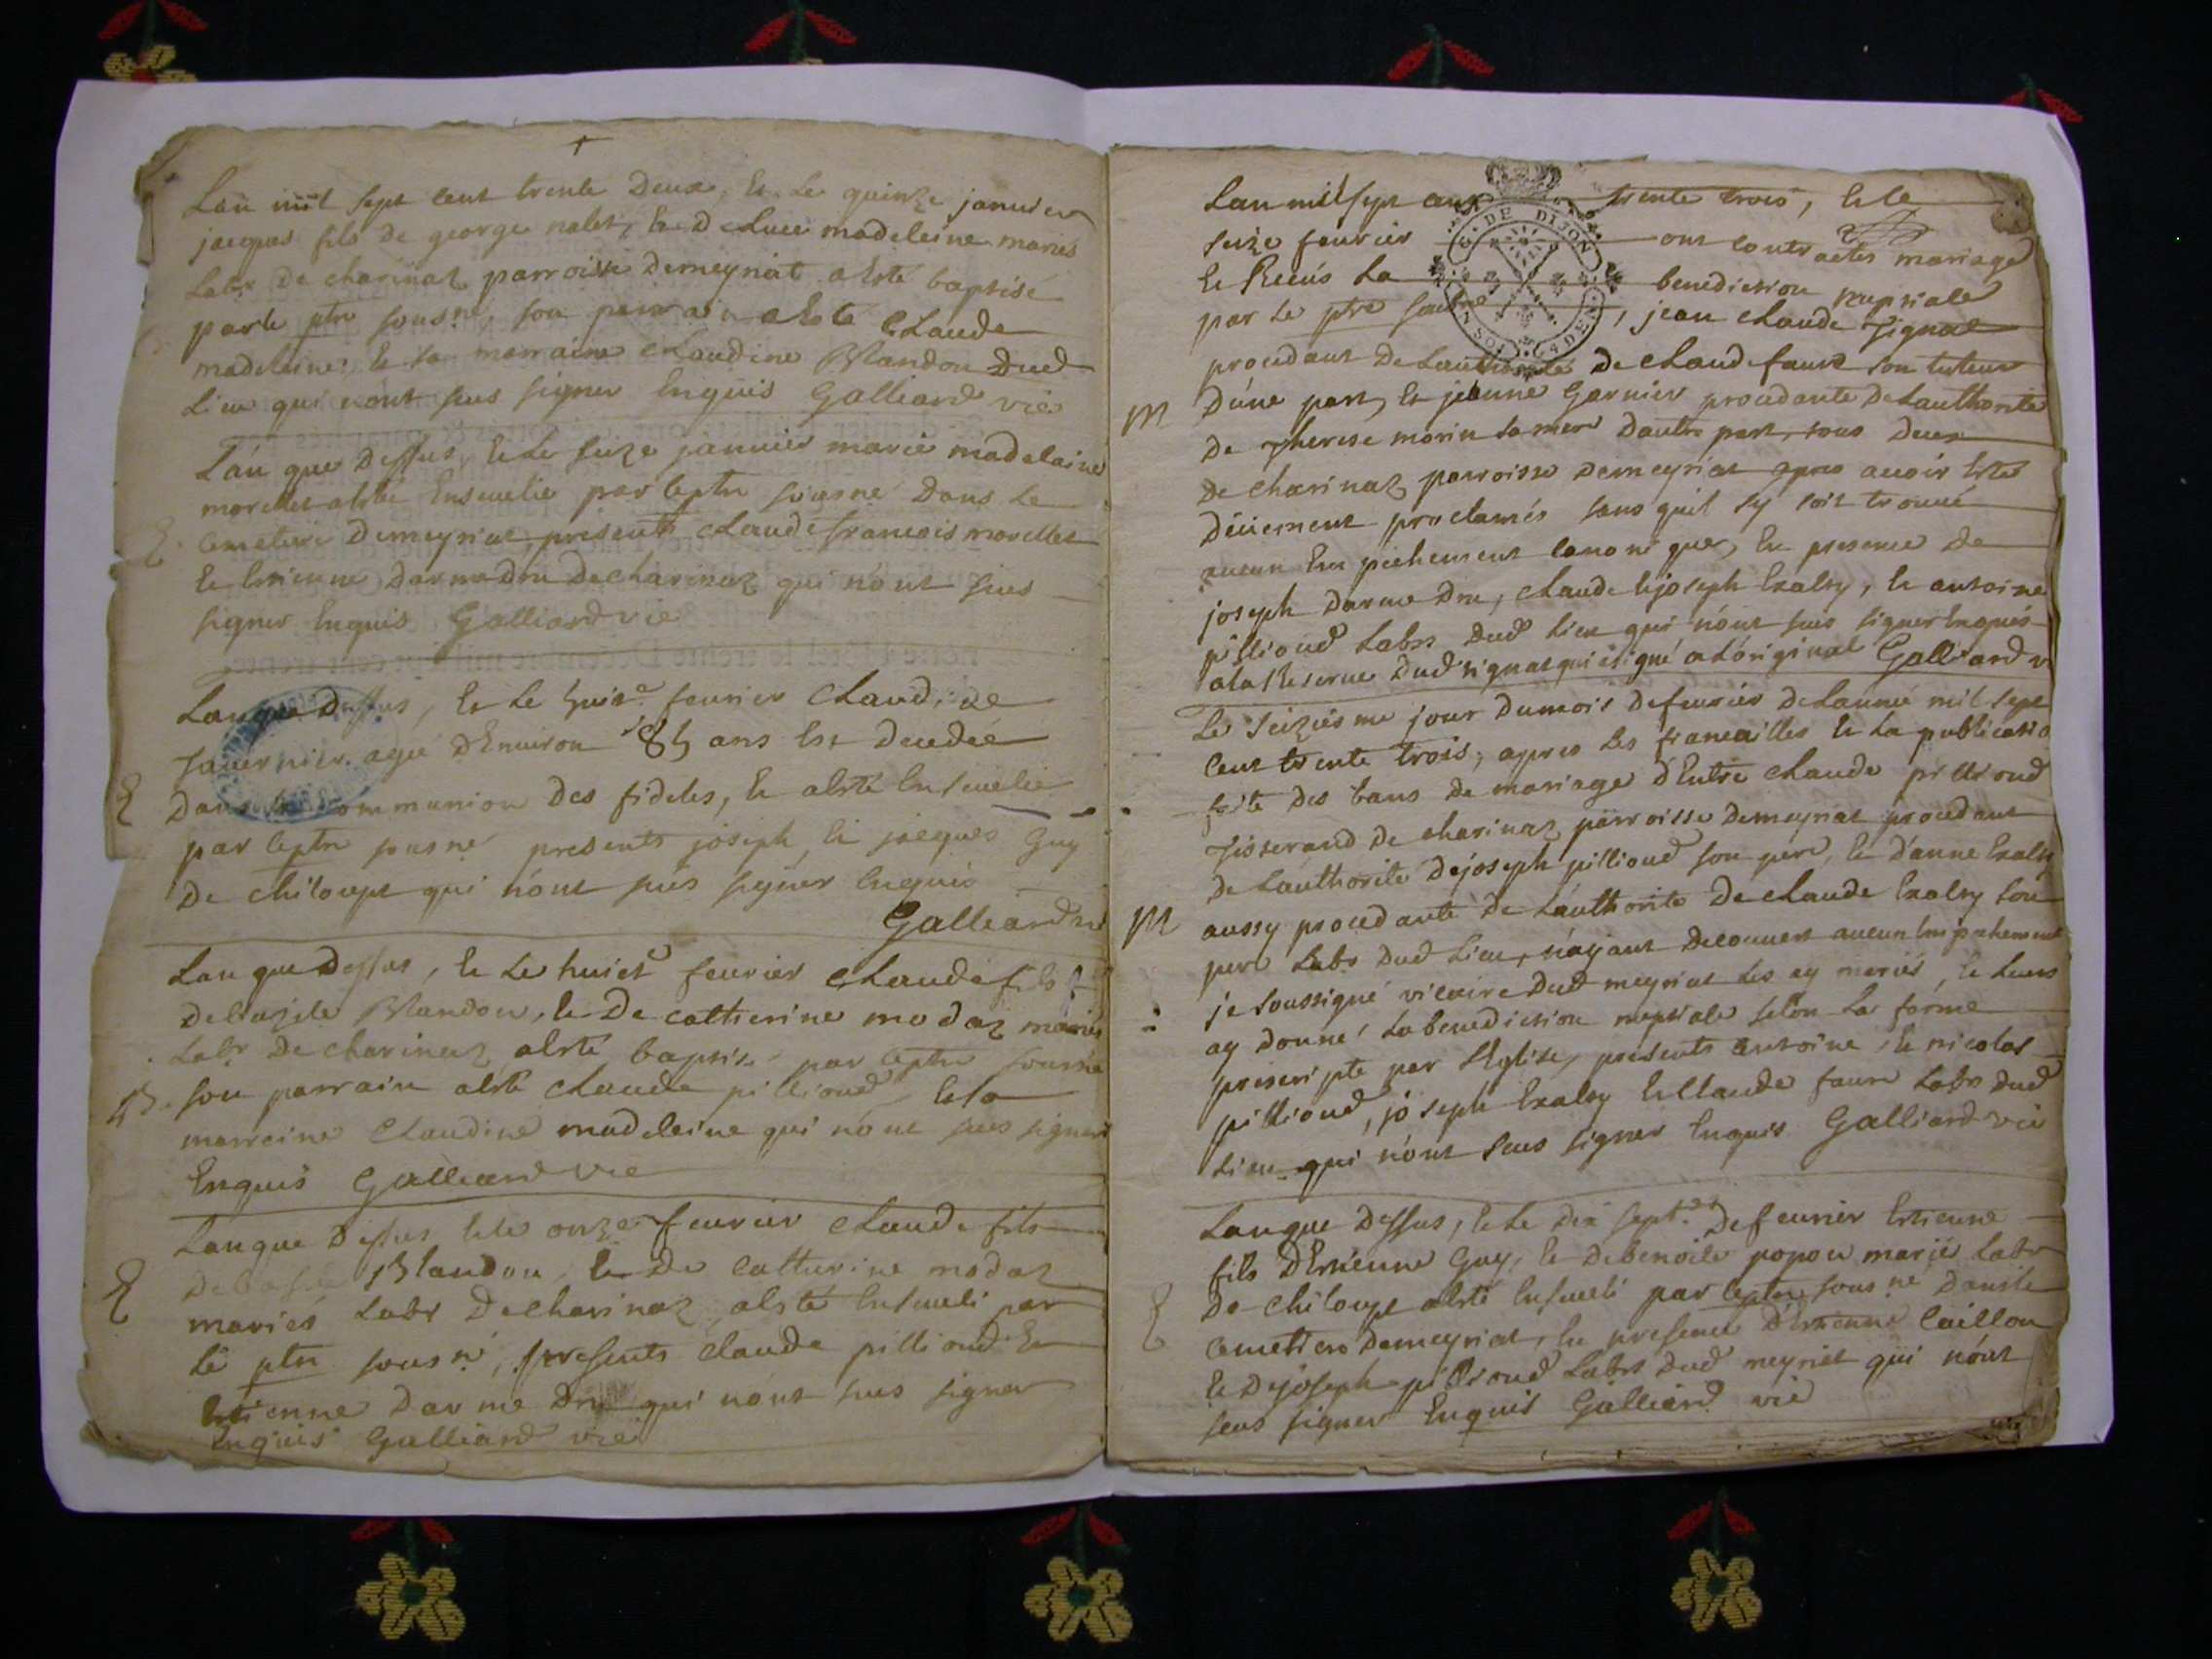 Lan mil sept cent trente Deux, Et Le quinze januier
jacques fils de george nalet, Et De Luce madeleine mariés
Labrs De charinaz parroisse Demeyriat a Esté baptisé
par le ptre sousné, son parrain a Esté Claude
madeleine, Et sa marraine Claudine Blandon Dud
Lieu qui n'ont sus signer Enquis Galliard vic
L'an que Dessus, Et Le seize januier marie madelaine
morellet a Esté Enseuelie par le ptre sousné Dans Le
Cemetiere Demeyriat, presents Claude francois morellet
Et Estienne Darmedru De charinaz qui n'ont sus
signer Enquis Galliard vic
Lan que Dessus, Et Le huit feurier Claudine
Tauernier agée D'Enuiron 85 ans Est Decedée
Dans la Communion Des fideles, Et a Esté Enseuelie
par le ptre sousné presents joseph Et jacques Guy
De chiloupt qui n'ont sus signer Enquis
Galliard vic
Lan que Dessus, Et Le huict feurier Claude fils
De bazile Blandon, Et De catherine modaz mariés
Labr De charinaz a Esté baptisé par le ptre sousné
B. son parrain a Esté Claude pillioud Et sa
marraine Claudine madeleine qui n'ont sus signer
Enquis Galliard vic
Lan que Dessus Et le onze feurier Claude fils
De Blandon, Et De Catherine modaz
mariés Labr De charinaz, a Esté Enseueli par
Le ptre sousné, presents Claude pillioud Et
Estienne Darmedru qui n'ont sus signer
Enquis Galliard vic
Lan mil sept cent trente trois, Et le
DE DIJON
seize feurier ont contractés mariage
Et Receus La benediction nuptiale
par Le ptre sousné, jean Claude Tignat
procedant De Lauthorité De Claude faure son tuteur
M D'une part, Et jeanne Garnier procedante De Lauthorité
De Therese morin sa mere D'autre part, tous Deux
De charinaz parroisse Demeyriat apres auoir Esté
Deüement proclamés sans quil sy soit trouué
aucun Empechement canonique, En presence De
joseph Darmedru, Claude Et joseph Exalty, Et antoine
pillioud Labrs Dud Lieu qui n'ont sus signer Enquis
a la Reserue Dud tignat qui a signé a L'original Galliard v
Le seiziesme jour Dumois De feurier De Lannée mil sept
Cent trente trois, apres Les fiancailles Et La publicatio
faite Des bans De mariage D'Entre Claude pillioud
Tisserand De charinaz parroisse Demeyriat procedant
De L'authorité De joseph pillioud son pere, Et D'anne Exalty
M aussy procedante De L'authorité De Claude Exalty son
pere Labr Dud Lieu, n'ayant Decouuert aucun Empechement
je soussigné vicaire Dud meyriat Les ay mariés, Et Leurs
ay Donné La benediction nuptiale selon La forme
prescripte par L'Eglise, presents antoine, Et nicolas
pillioud, joseph Exalty Et Claude faure Labrs Dud
Lieu qui n'ont sus signer Enquis Galliard vic
Lan que Dessus, Et Le Dix sept De feurier Estienne
fils D'Estienne Guy, Et De benoite popon mariés Labr
De chiloupt a Esté Enseueli par le ptre sousné Dans le
Cemetiere Demeyriat, En presence D'Estienne Caillon
Et De joseph pillioud Labrs Dud meyriat qui n'ont
sus signer Enquis Galliard vic